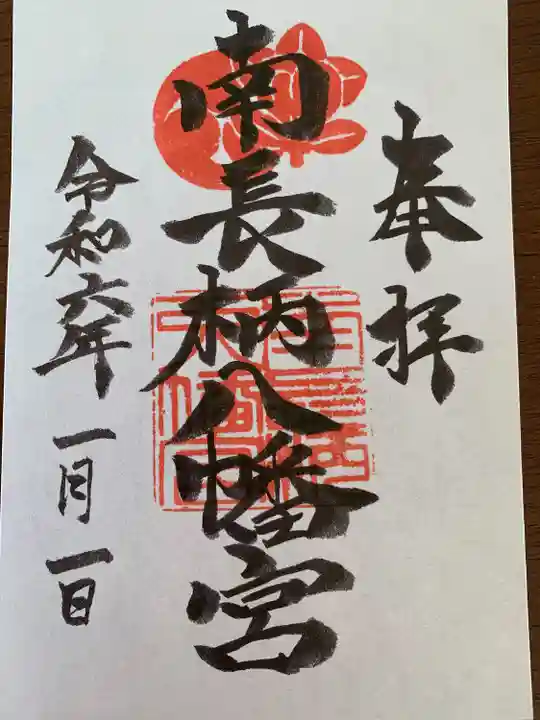 奉拝
南長柄八幡宮
令和六年一月一日